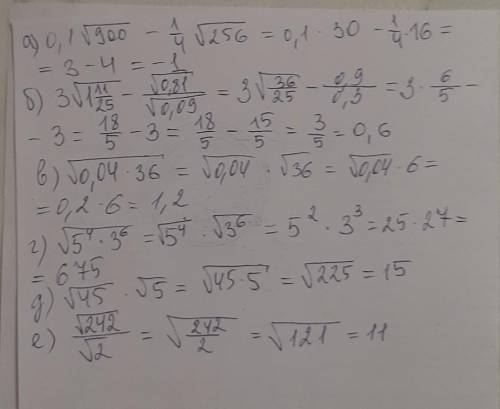 а) 0,1√900 − 1/4 √256 = 0,1 · 30 − 1/4 · 16 =
= 3 − 4 = −1
б) 3√(1 11/25) − √0,81/√0,09 = 3√(36/25) − 0,9/0,3 = 3 · 6/5 −
− 3 = 18/5 − 3 = 18/5 − 15/5 = 3/5 = 0,6
в) √(0,04 · 36) = √0,04 · √36 = √0,04 · 6 =
= 0,2 · 6 = 1,2
г) √(5⁴ · 3⁶) = √5⁴ · √3⁶ = 5² · 3³ = 25 · 27 =
= 675
д) √45 · √5 = √(45 · 5) = √225 = 15
е) √242/√2 = √(242/2) = √121 = 11